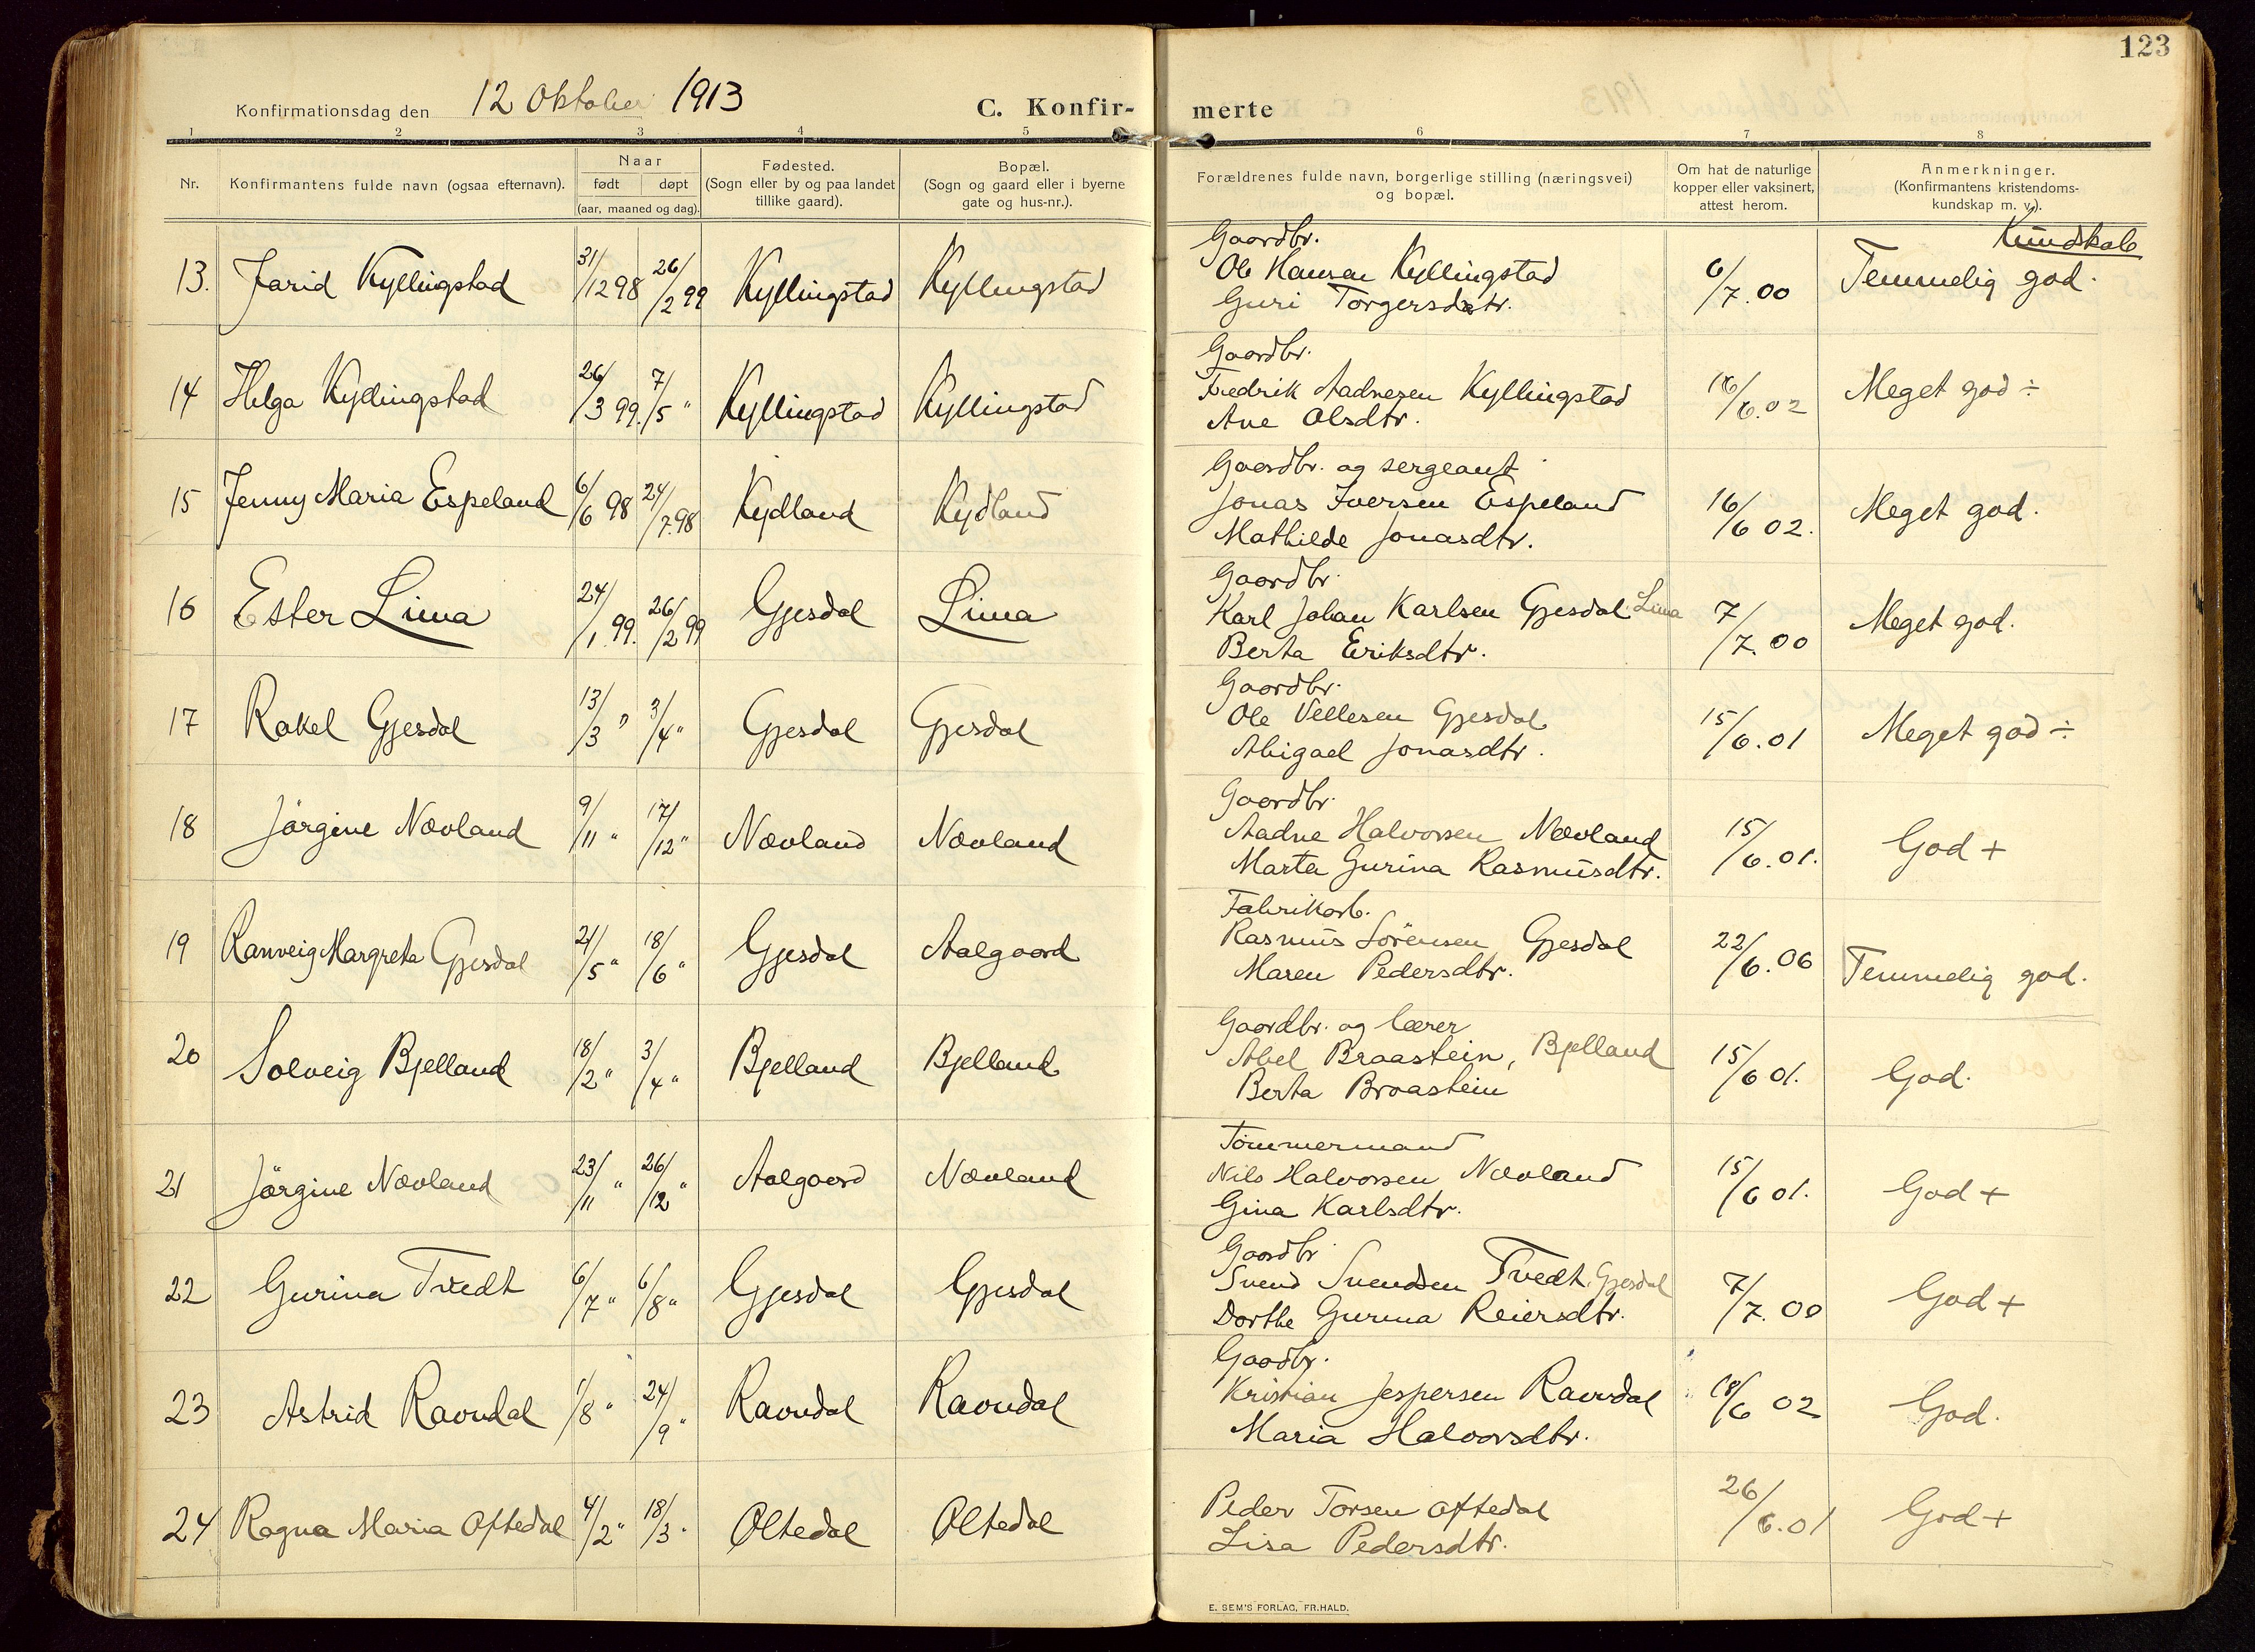 123
Konfirmationsdag den 12 Oktober 1913 C. Konfir- merte
1 2 3 4 5 6 7 8
Nr. Konfirmantens fulde navn (ogsaa efternavn). Naar født døpt (aar, maaned og dag). Fødested. (Sogn eller by og paa landet tillike gaard). Bopæl. (Sogn og gaard eller i byerne gate og hus-nr.). Forældrenes fulde navn, borgerlige stilling (næringsvei) og bopæl. Om hat de naturlige kopper eller vaksinert, attest herom. Anmerkninger. (Konfirmantens kristendoms-kundskap m. v.).
Kundskab
Gaardbr.
13. Jarid Kyllingstad 31/12 98 26/2 99 Kyllingstad Kyllingstad Ole Hansen Kyllingstad 6/7.00 Temmelig god.
Guri Torgersdtr.
Gaardbr.
14 Helga Kyllingstad 26/3 99. 7/5 " Kyllingstad Kyllingstad Fredrik Aadnesen Kyllingstad 16/6.02 Meget god ÷
Ane Olsdtr.
Gaardbr. og sergeant
15 Jenny Maria Espeland 6/6 98 24/7.98 Kydland Kydland Jonas Iversen Espeland 16/6 02. Meget god.
Mathilde Jonasdtr.
Gaardbr.
16 Ester Lima 24/1.99. 26/2 99 Gjesdal Lima Karl Johan Karlsen Gjesdal Lima 7/7.00 Meget god.
Berta Eriksdtr.
Gaardbr.
17 Rakel Gjesdal 13/3 " 3/4 " Gjesdal Gjesdal Ole Vellesen Gjesdal 15/6.01 Meget god ÷
Abigael Jonasdtr.
Gaardbr.
18 Jörgine Nævland 9/11 " 17/12 " Nævland Nævland Aadne Halvorsen Nævland 15/6.01. God +
Marta Gurina Rasmusdtr.
Fabrikarb.
19 Ranveig Margreta Gjesdal 21/5 " 18/6 " Gjesdal Aalgaard Rasmus Sörensen Gjesdal 22/6.06 Temmelig god.
Maren Pedersdtr.
Gaardbr. og lærer
20 Solveig Bjelland 18/2 " 3/4 " Bjelland Bjelland Abel Braastein, Bjelland 15/6 01. God.
Berta Braastein
Tömmermand
21 Jörgine Nævland 23/11 " 26/12 " Aalgaard Nævland Nils Halvorsen Nævland 15/6 01. God +
Gina Karlsdtr.
Gaardbr
22 Gurina Tvedt 6/7 " 6/8 " Gjesdal Gjesdal Svend Svendsen Tvedt Gjesdal 7/7.00 God +
Dorthe Gurina Reiersdtr.
Gaardbr.
23 Astrid Ravndal 1/8 " 24/9 " Ravndal Ravndal Kristian Jespersen Ravndal 18/6 02 God.
Maria Halvorsdtr.
24 Ragna Maria Oftedal 4/2 " 18/3 " Oltedal Oltedal Peder Torsen Oftedal 26/6.01 God +
Lisa Pedersdtr.
E. SEM'S FORLAG, FR.HALD.